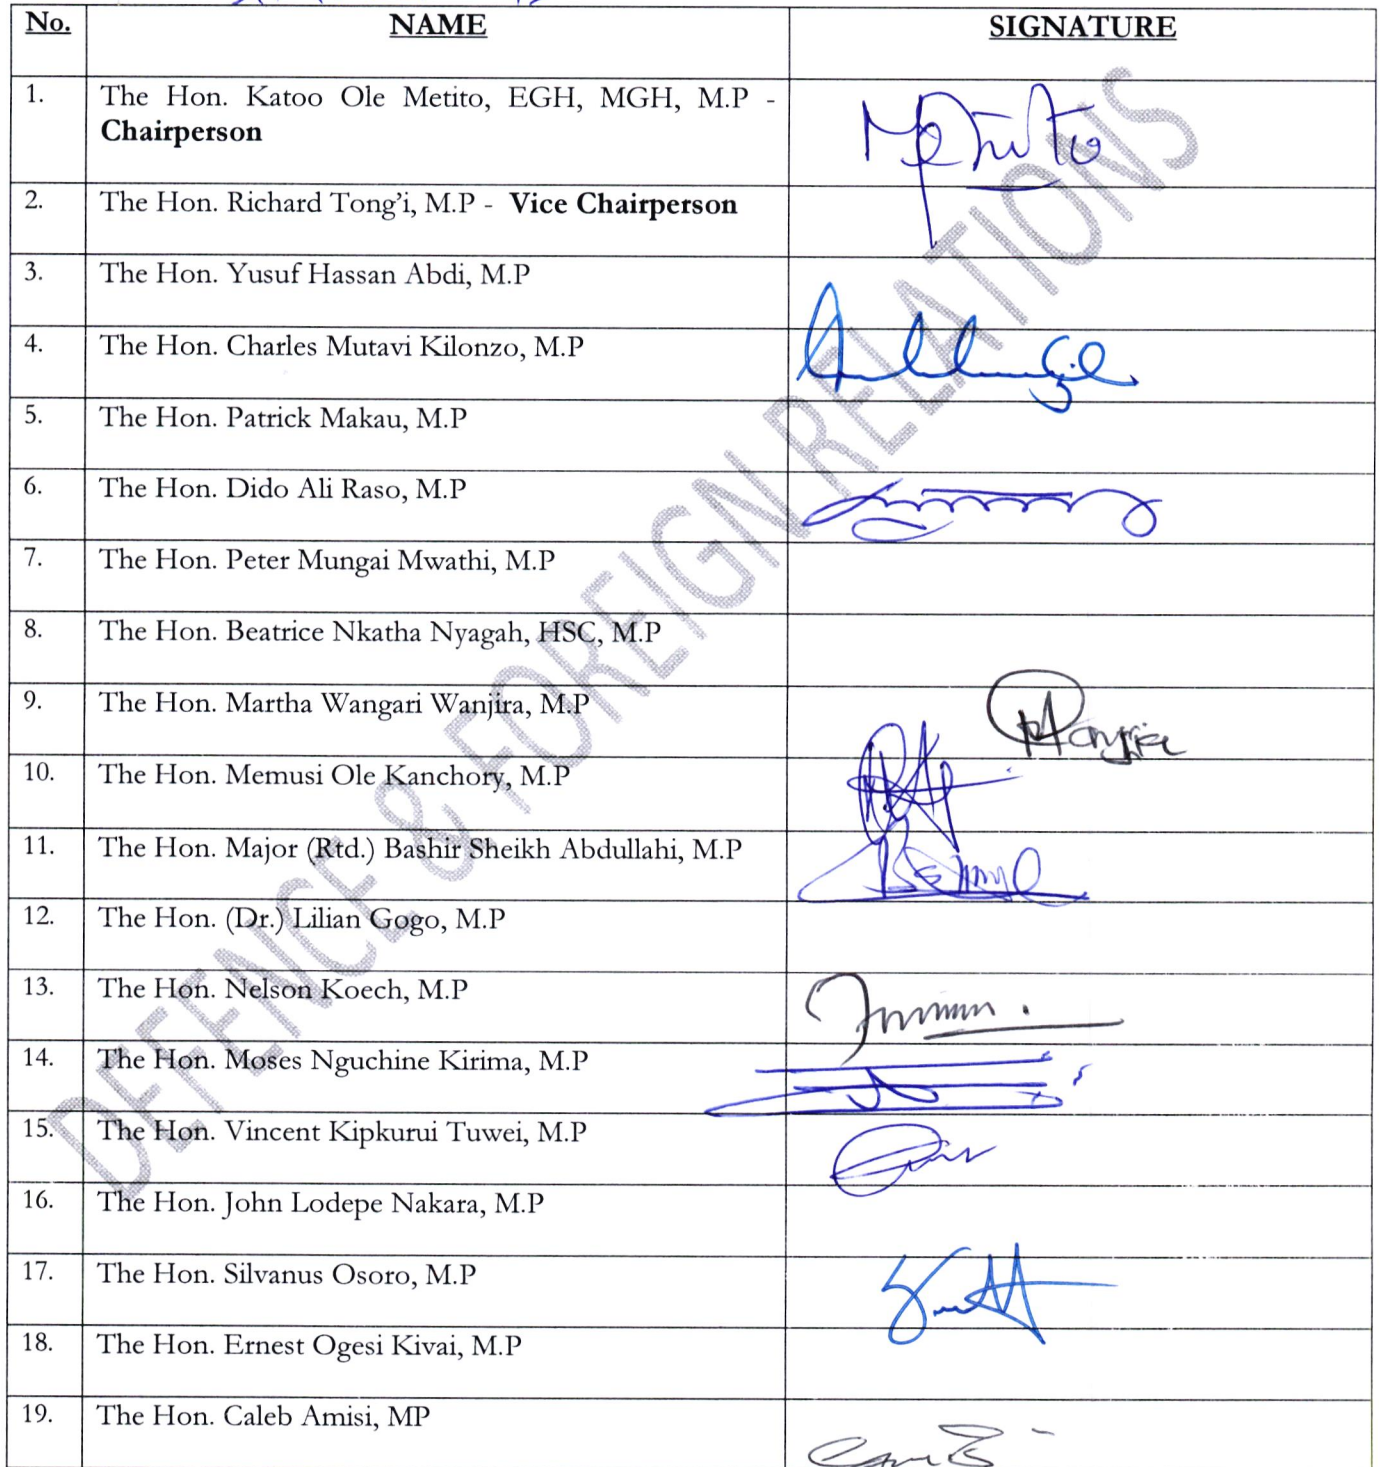 No. NAME SIGNATURE
1. The Hon. Katoo Ole Metito, EGH, MGH, M.P -
Chairperson
Metito
2. The Hon. Richard Tong'i, M.P - Vice Chairperson
3. The Hon. Yusuf Hassan Abdi, M.P
4. The Hon. Charles Mutavi Kilonzo, M.P
5. The Hon. Patrick Makau, M.P
6. The Hon. Dido Ali Raso, M.P
7. The Hon. Peter Mungai Mwathi, M.P
8. The Hon. Beatrice Nkatha Nyagah, HSC, M.P
9. The Hon. Martha Wangari Wanjira, M.P
10. The Hon. Memusi Ole Kanchory, M.P
11. The Hon. Major (Rtd.) Bashir Sheikh Abdullahi, M.P
12. The Hon. (Dr.) Lilian Gogo, M.P
13. The Hon. Nelson Koech, M.P
14. The Hon. Moses Nguchine Kirima, M.P
15. The Hon. Vincent Kipkurui Tuwei, M.P
16. The Hon. John Lodepe Nakara, M.P
17. The Hon. Silvanus Osoro, M.P
18. The Hon. Ernest Ogesi Kivai, M.P
19. The Hon. Caleb Amisi, MP
DEFENCE & FOREIGN RELATIONS